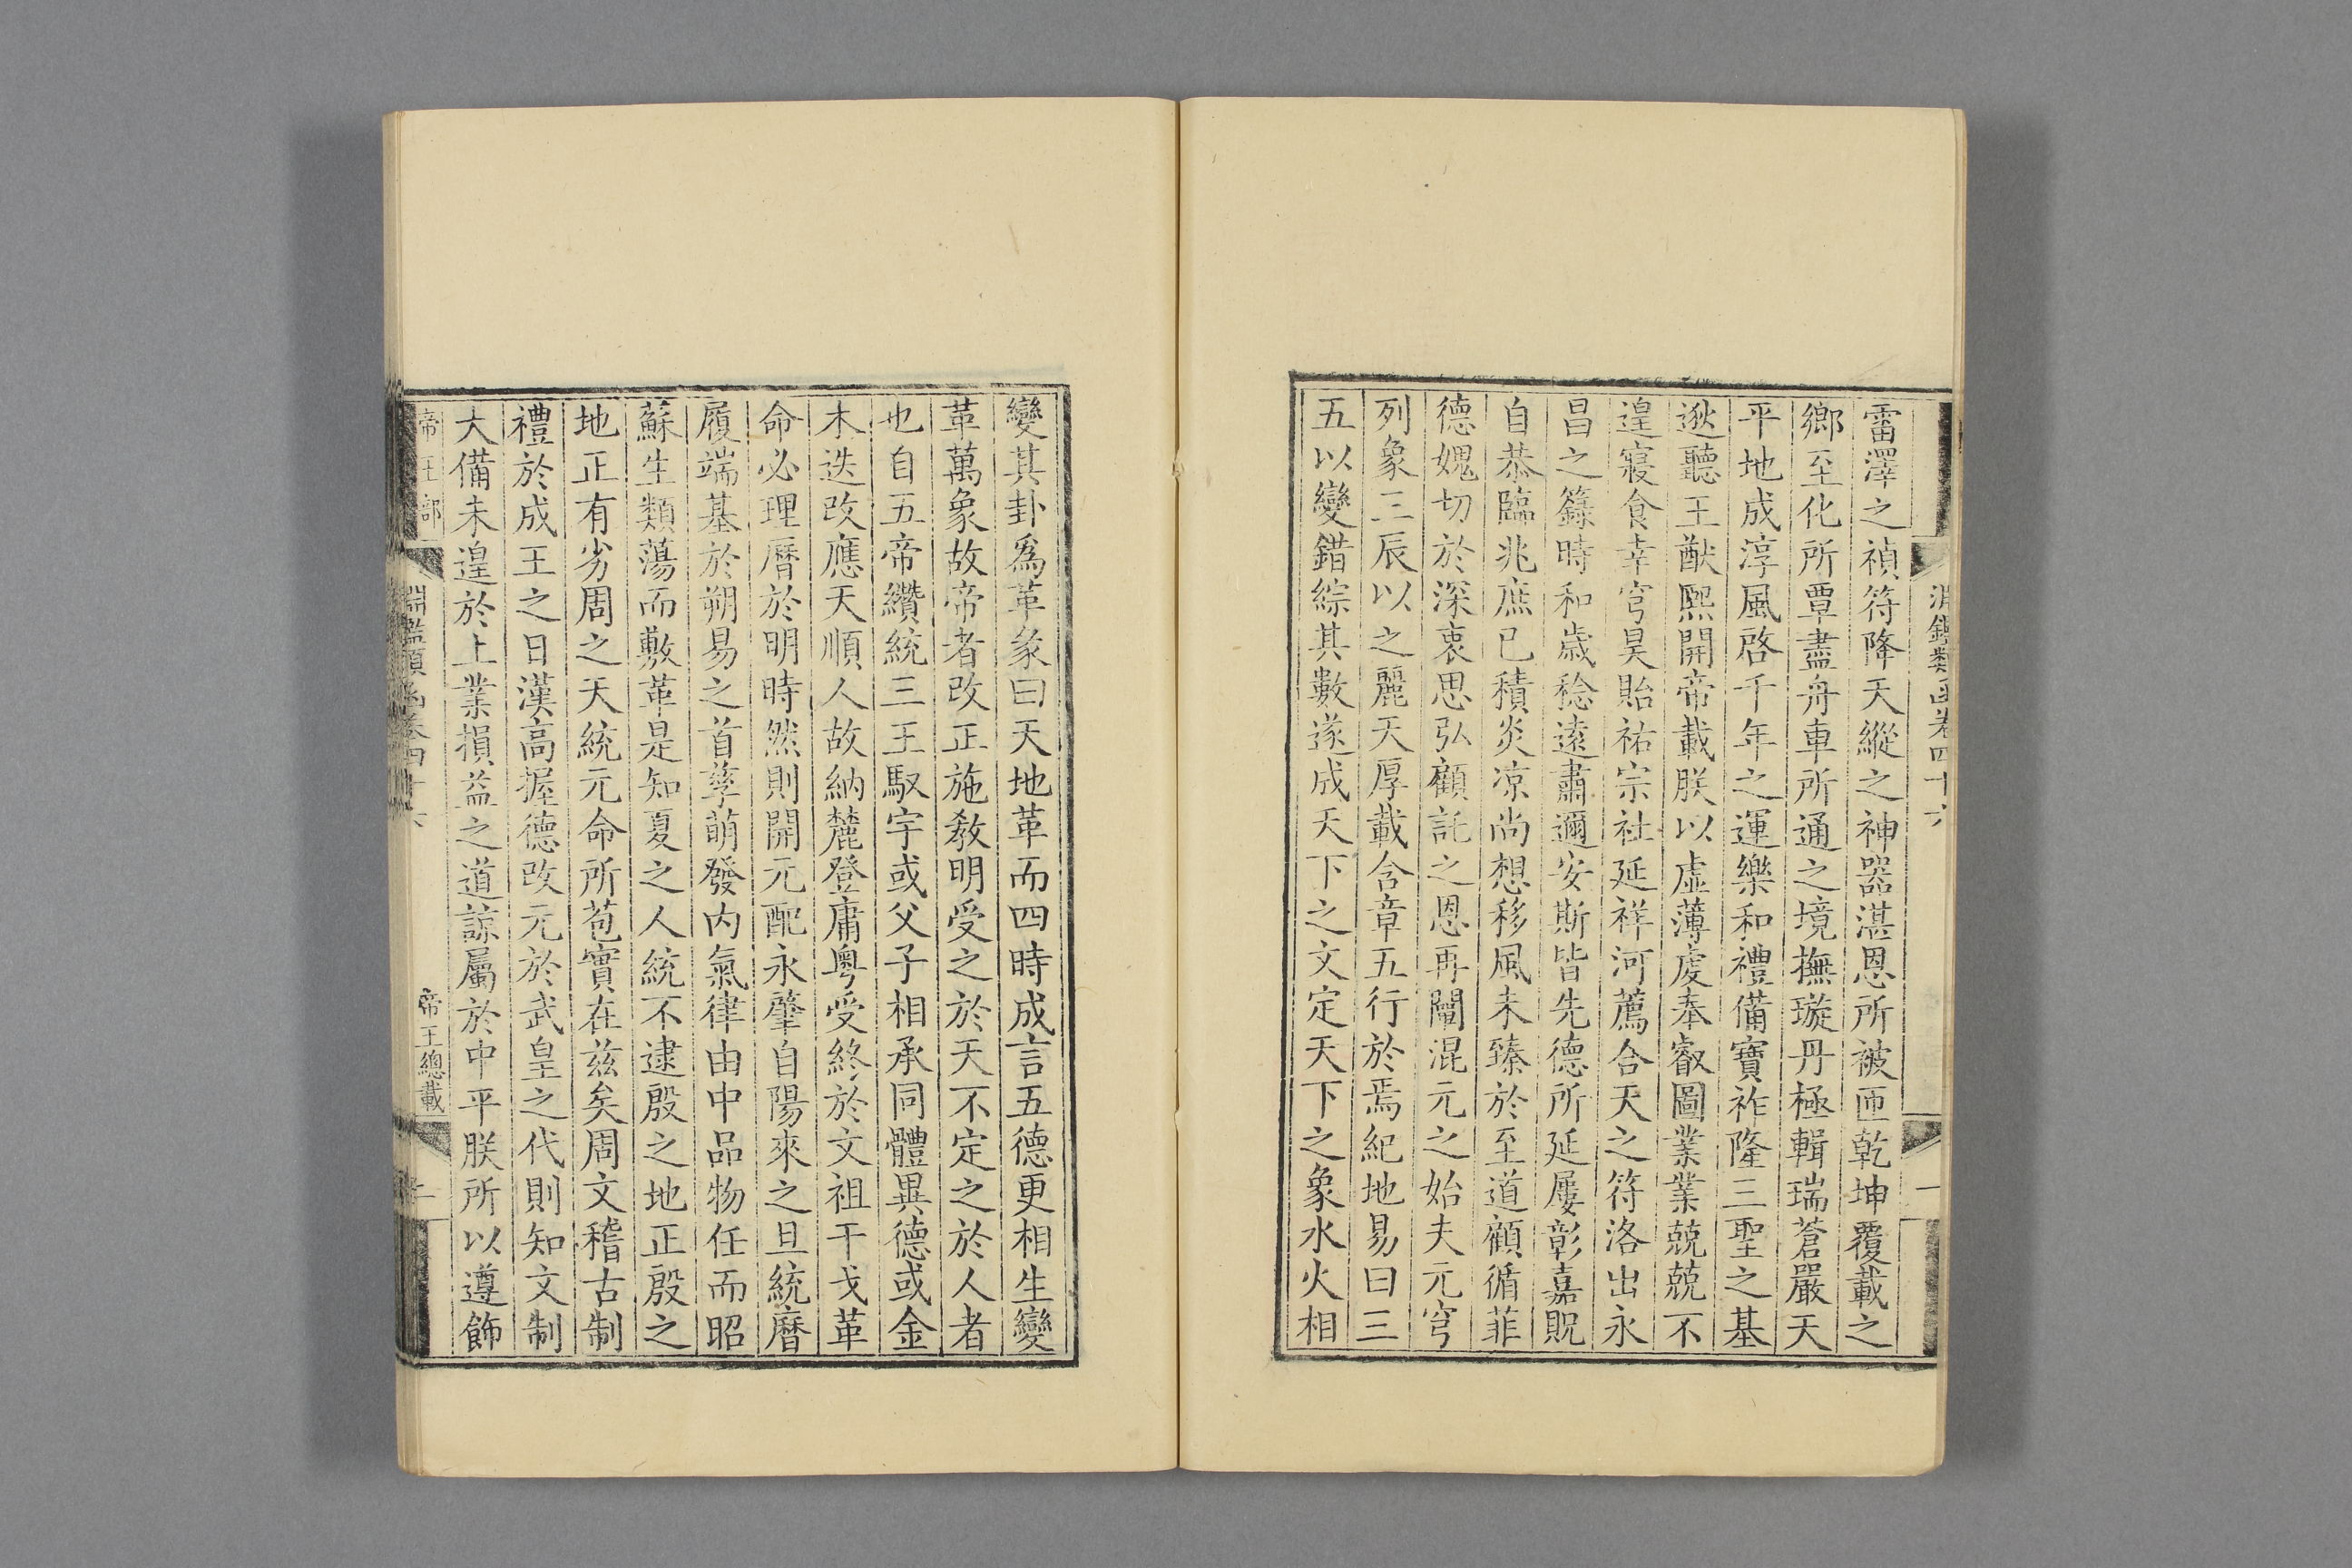 淵鑑類函卷四十六
一
雷澤之禎符降天縱之神器湛恩所被匝乾坤覆載之
鄉至化所覃盡舟車所通之境撫璇丹極輯瑞蒼嚴天
平地成淳風啓千年之運樂和禮備寶祚隆三聖之基
逖聽王猷熙開帝載朕以虛薄虔奉叡圖業業兢兢不
遑寢食幸穹昊貽祐宗社延祥河薦合天之符洛出永
昌之籙時和歲稔遠肅邇安斯皆先德所延屢彰嘉貺
自恭臨兆庶已積炎凉尚想移風未臻於至道顧循菲
德媿切於深衷思弘顧託之恩再闡混元之始夫元穹
列象三辰以之麗天厚載含章五行於焉紀地易曰三
五以變錯綜其數遂成天下之文定天下之象水火相
變其卦爲革象曰天地革而四時成言五德更相生變
革萬象故帝者改正施敎明受之於天不定之於人者
也自五帝纘統三王馭宇或父子相承同體異德或金
木迭改應天順人故納麓登庸粤受終於文祖干戈革
命必理曆於明時然則開元配永肇自陽來之旦統曆
履端基於朔易之首孳萌發内氣律由中品物任而昭
蘇生類蕩而敷革是知夏之人統不逮殷之地正殷之
地正有劣周之天統元命所苞實在兹矣周文稽古制
禮於成王之日漢高握德改元於武皇之代則知文制
大備未遑於上業損益之道諒屬於中平朕所以遵飾
帝王部
淵鑑類函卷四十六
帝王總載
二